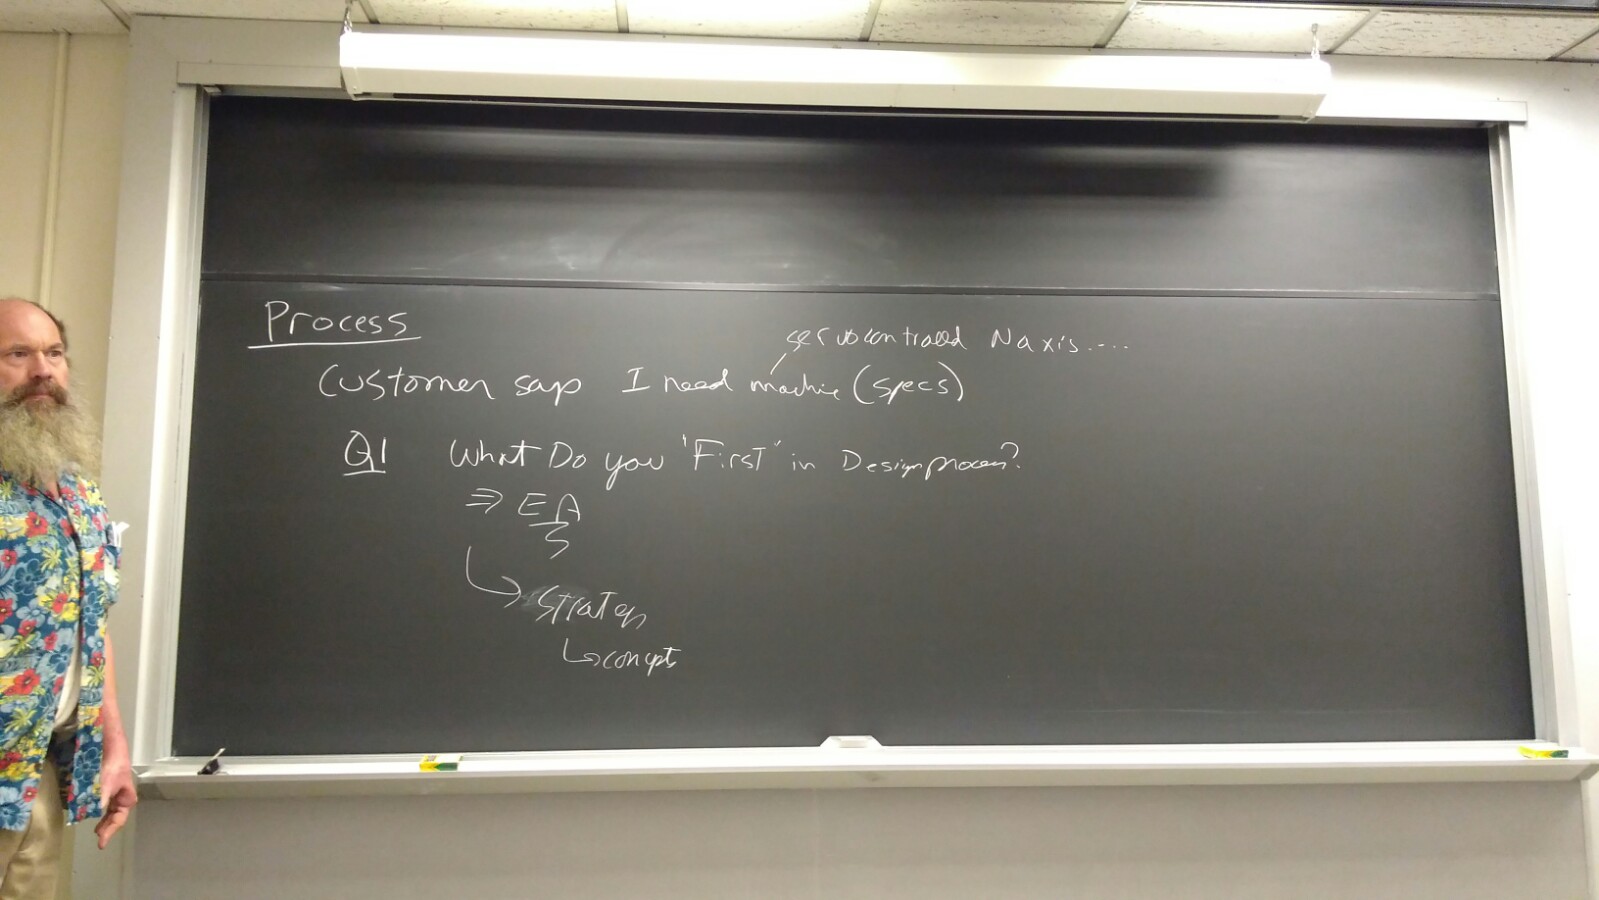 Process
servocontrolled N axis....
Customer says I need machine (specs)
Q1 What Do you "First" in Design process?
⇒ EA
S
↳ Strategy
↳ concepts